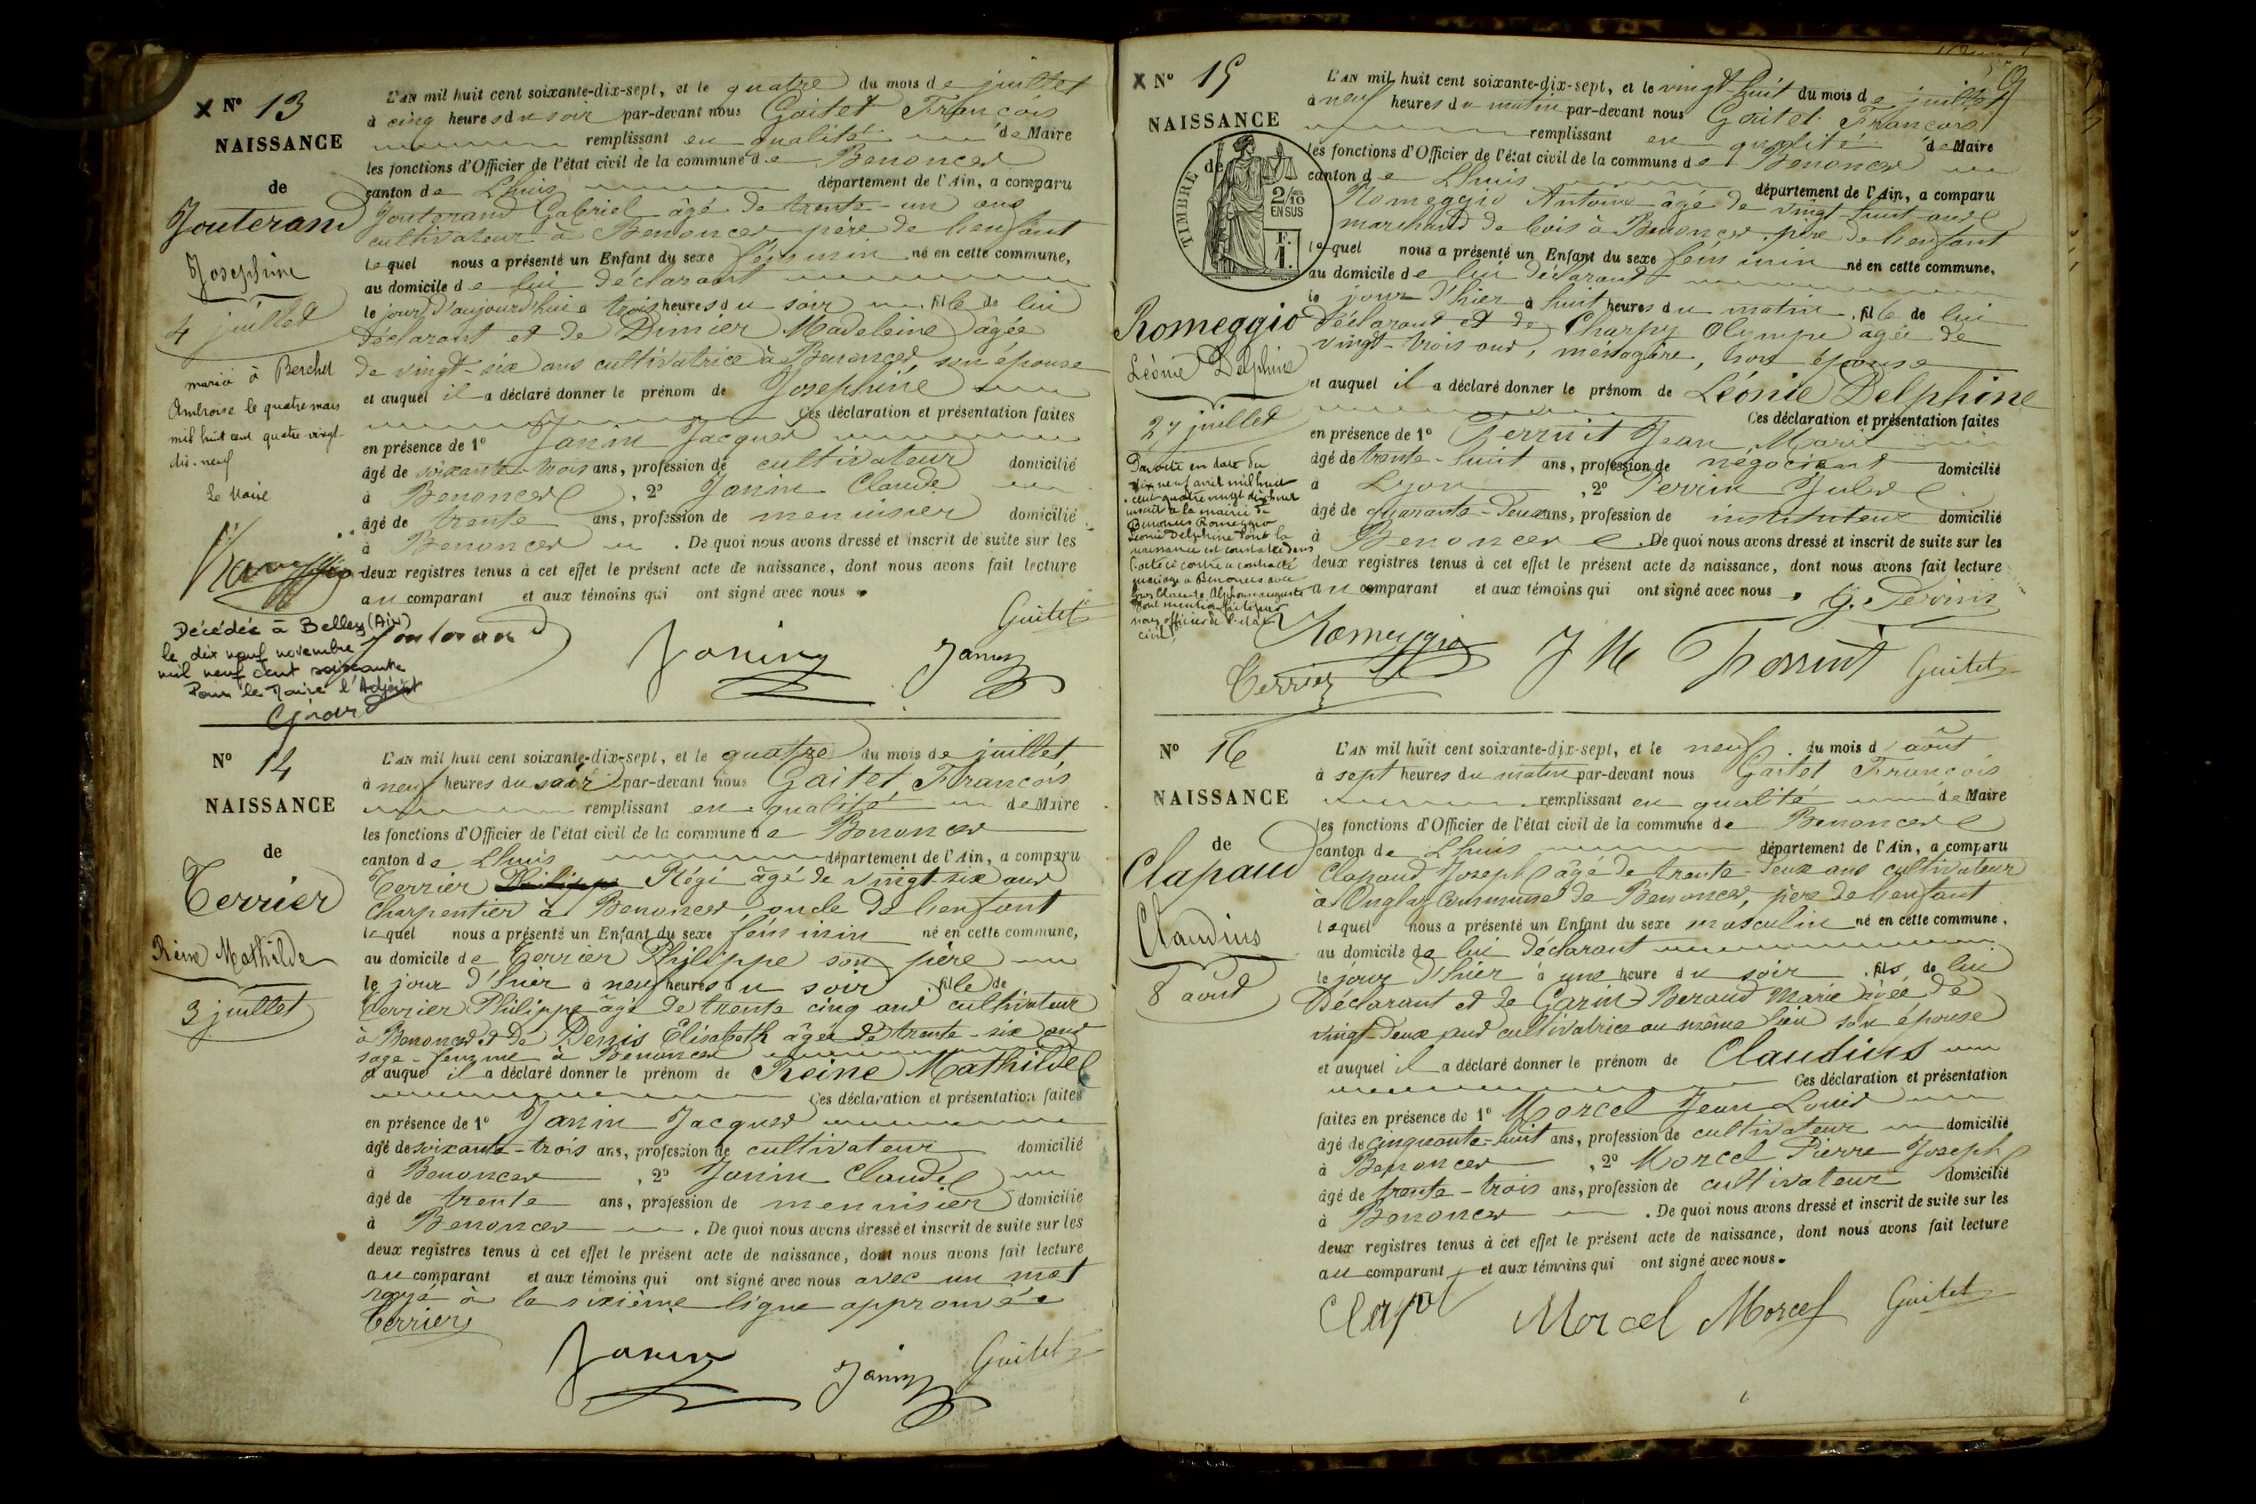 x N° 13
NAISSANCE
de
Jouterand
Joséphine
4 juillet
marié à Berchet
Ambroise le quatre mars
mil huit cent quatre-vingt
dix-neuf
Le Maire
Décédée à Belley (Ain)
le dix neuf novembre
mil neuf cent soixante
Pour le Maire l'Adjoint
L'AN mil huit cent soixante-dix-sept, et le quatre du mois de juillet
à cinq heures du soir par-devant nous Gaitet François
remplissant en qualité de Maire
les fonctions d'Officier de l'état civil de la commune de Benonces
canton de Lhuis département de l'Ain, a comparu
Jouterand Gabriel âgé de trente-un ans
cultivateur à Benonces père de l'enfant
lequel nous a présenté un Enfant du sexe féminin né en cette commune,
au domicile de lui déclarant
le jour d'aujourd'hui à trois heures du soir fille de lui
déclarant et de Dimier Madeleine âgée
de vingt-six ans cultivatrice à Benonces son épouse
et auquel il a déclaré donner le prénom de Joséphine
Ces déclaration et présentation faites
en présence de 1° Janin Jacques
âgé de soixante-trois ans, profession de cultivateur domicilié
à Benonces, 2° Janin Claude
âgé de trente ans, profession de menuisier domicilié
à Benonces. De quoi nous avons dressé et inscrit de suite sur les
deux registres tenus à cet effet le présent acte de naissance, dont nous avons fait lecture
au comparant et aux témoins qui ont signé avec nous.
Jouterand Janin Janin Gaitet
N° 14
NAISSANCE
de
Terrier
Reine Mathilde
3 juillet
L'AN mil huit cent soixante-dix-sept, et le quatre du mois de juillet
à neuf heures du soir par-devant nous Gaitet François
remplissant en qualité de Maire
les fonctions d'Officier de l'état civil de la commune de Benonces
canton de Lhuis département de l'Ain, a comparu
Terrier Philippe Régi âgé de vingt-six ans
charpentier à Benonces, oncle de l'enfant
lequel nous a présenté un Enfant du sexe féminin né en cette commune,
au domicile de Terrier Philippe son père
le jour d'hier à neuf heures du soir fille de
Terrier Philippe âgé de trente cinq ans cultivateur
à Benonces et de Denis Elisabeth âgée de trente-six ans
sage-femme à Benonces
et auquel il a déclaré donner le prénom de Reine Mathilde
Ces déclaration et présentation faites
en présence de 1° Janin Jacques
âgé de soixante-trois ans, profession de cultivateur domicilié
à Benonces, 2° Janin Claude
âgé de trente ans, profession de menuisier domicilié
à Benonces. De quoi nous avons dressé et inscrit de suite sur les
deux registres tenus à cet effet le présent acte de naissance, dont nous avons fait lecture
au comparant et aux témoins qui ont signé avec nous avec un mot
rayé à la sixième ligne approuvé.
Terrier
Janin Janin Gaitet
x N° 15
NAISSANCE
de
TIMBRE
2/10
EN SUS
F.
1
Romeggio
Léonie Delphine
27 juillet
Par acte en date du
dix neuf avril mil huit
cent quatre vingt dix huit
inscrit à la mairie de
Benonces Romeggio
Léonie Delphine dont la
naissance est constatée dans
l'acte ci contre a contracté
mariage à Benonces avec
Claude Alphonse Auguste
nous officier de l'état
civil
L'AN mil huit cent soixante-dix-sept, et le vingt-huit du mois de juillet
à neuf heures du matin par-devant nous Gaitet François
remplissant en qualité de Maire
les fonctions d'Officier de l'état civil de la commune de Benonces
canton de Lhuis département de l'Ain, a comparu
Romeggio Antoine âgé de vingt-huit ans
marchand de bois à Benonces père de l'enfant
lequel nous a présenté un Enfant du sexe féminin né en cette commune,
au domicile de lui déclarant
le jour d'hier à huit heures du matin, fille de lui
déclarant et de Charpy Olympe âgée de
vingt-trois ans, ménagère, son épouse
et auquel il a déclaré donner le prénom de Léonie Delphine
Ces déclaration et présentation faites
en présence de 1° Ferruit Jean Marie
âgé de trente-huit ans, profession de négociant domicilié
à Lyon, 2° Perrin Jules
âgé de quarante-deux ans, profession de instituteur domicilié
à Benonces. De quoi nous avons dressé et inscrit de suite sur les
deux registres tenus à cet effet le présent acte de naissance, dont nous avons fait lecture
au comparant et aux témoins qui ont signé avec nous. J. Perrin
Romeggio J M Ferruit Gaitet
Terrier
N° 16
NAISSANCE
de
Clapaud
Claudius
8 août
L'AN mil huit cent soixante-dix-sept, et le neuf du mois d'août
à sept heures du matin par-devant nous Gaitet François
remplissant en qualité de Maire
les fonctions d'Officier de l'état civil de la commune de Benonces
canton de Lhuis département de l'Ain, a comparu
Clapaud Joseph âgé de trente-deux ans cultivateur
à Onglas commune de Benonces, père de l'enfant
lequel nous a présenté un Enfant du sexe masculin né en cette commune,
au domicile de lui déclarant
le jour d'hier à une heure du soir, fils de lui
déclarant et de Garin-Beraud Marie âgée de
vingt-deux ans cultivatrice au même lieu son épouse
et auquel il a déclaré donner le prénom de Claudius
Ces déclaration et présentation
faites en présence de 1° Morcel Jean Louis
âgé de cinquante-huit ans, profession de cultivateur domicilié
à Benonces, 2° Morcel Pierre Joseph
âgé de trente-trois ans, profession de cultivateur domicilié
à Benonces. De quoi nous avons dressé et inscrit de suite sur les
deux registres tenus à cet effet le présent acte de naissance, dont nous avons fait lecture
au comparant et aux témoins qui ont signé avec nous.
Morcel Morcel Gaitet